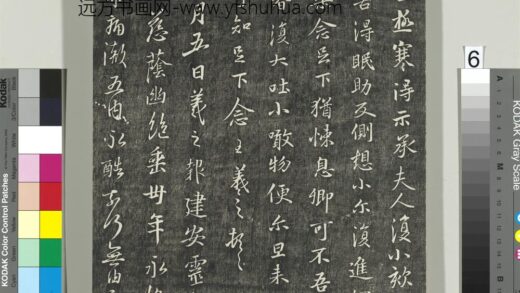 远方书画网-www.yfshuhua.com
極寒得示承夫人復小欬
得眠助反側想小尔復進
念足下猶悚息卿可不吾
復大吐小噉物便尔旦来
知足下念王羲之頓
月五日羲之報建安靈
慈蔭幽絕垂卅年永
痛澈五內永酷奈何無由
6
Kodak
KODAK Color Control Patches
KODAK Gray Scale
A
M